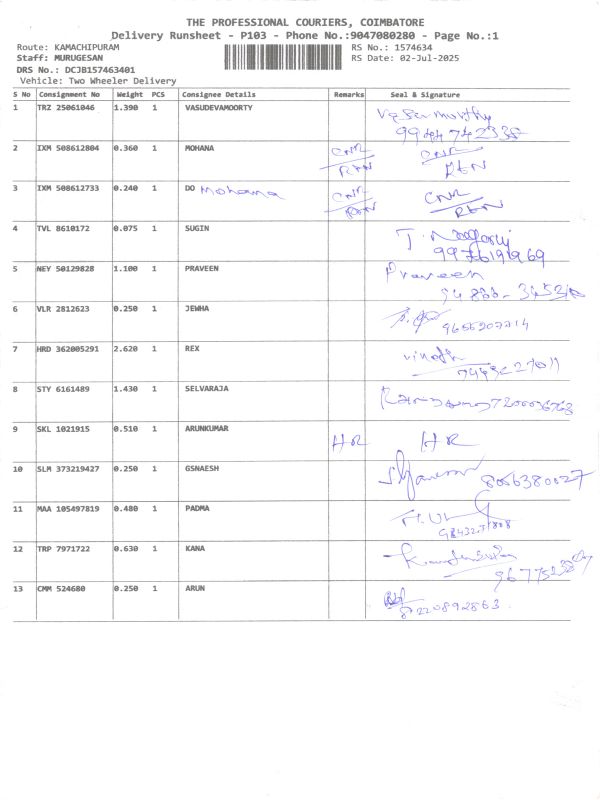 THE PROFESSIONAL COURIERS, COIMBATORE
Delivery Runsheet - P103 - Phone No.:9047080280 - Page No.:1
Route: KAMACHIPURAM RS No.: 1574634
Staff: MURUGESAN RS Date: 02-Jul-2025
DRS No.: DCJB157463401
Vehicle: Two Wheeler Delivery
S No Consignment No Weight PCS Consignee Details Remarks Seal & Signature
1 TRZ 25061046 1.390 1 VASUDEVAMOORTY
2 IXM 508612804 0.360 1 MOHANA CNR CNR
RTN RTN
3 IXM 508612733 0.240 1 DO Mohana CNR CNR
RTN RTN
4 TVL 8610172 0.075 1 SUGIN
9976191969
5 NEY 50129828 1.100 1 PRAVEEN Praveen
6 VLR 2812623 0.250 1 JEWHA
9655207714
7 HRD 362005291 2.620 1 REX vinoth
8 STY 6161489 1.430 1 SELVARAJA
9 SKL 1021915 0.510 1 ARUNKUMAR HR HR
10 SLM 373219427 0.250 1 GSNAESH 8056380027
11 MAA 105497819 0.480 1 PADMA
12 TRP 7971722 0.630 1 KANA
13 CMM 524680 0.250 1 ARUN
8220892863